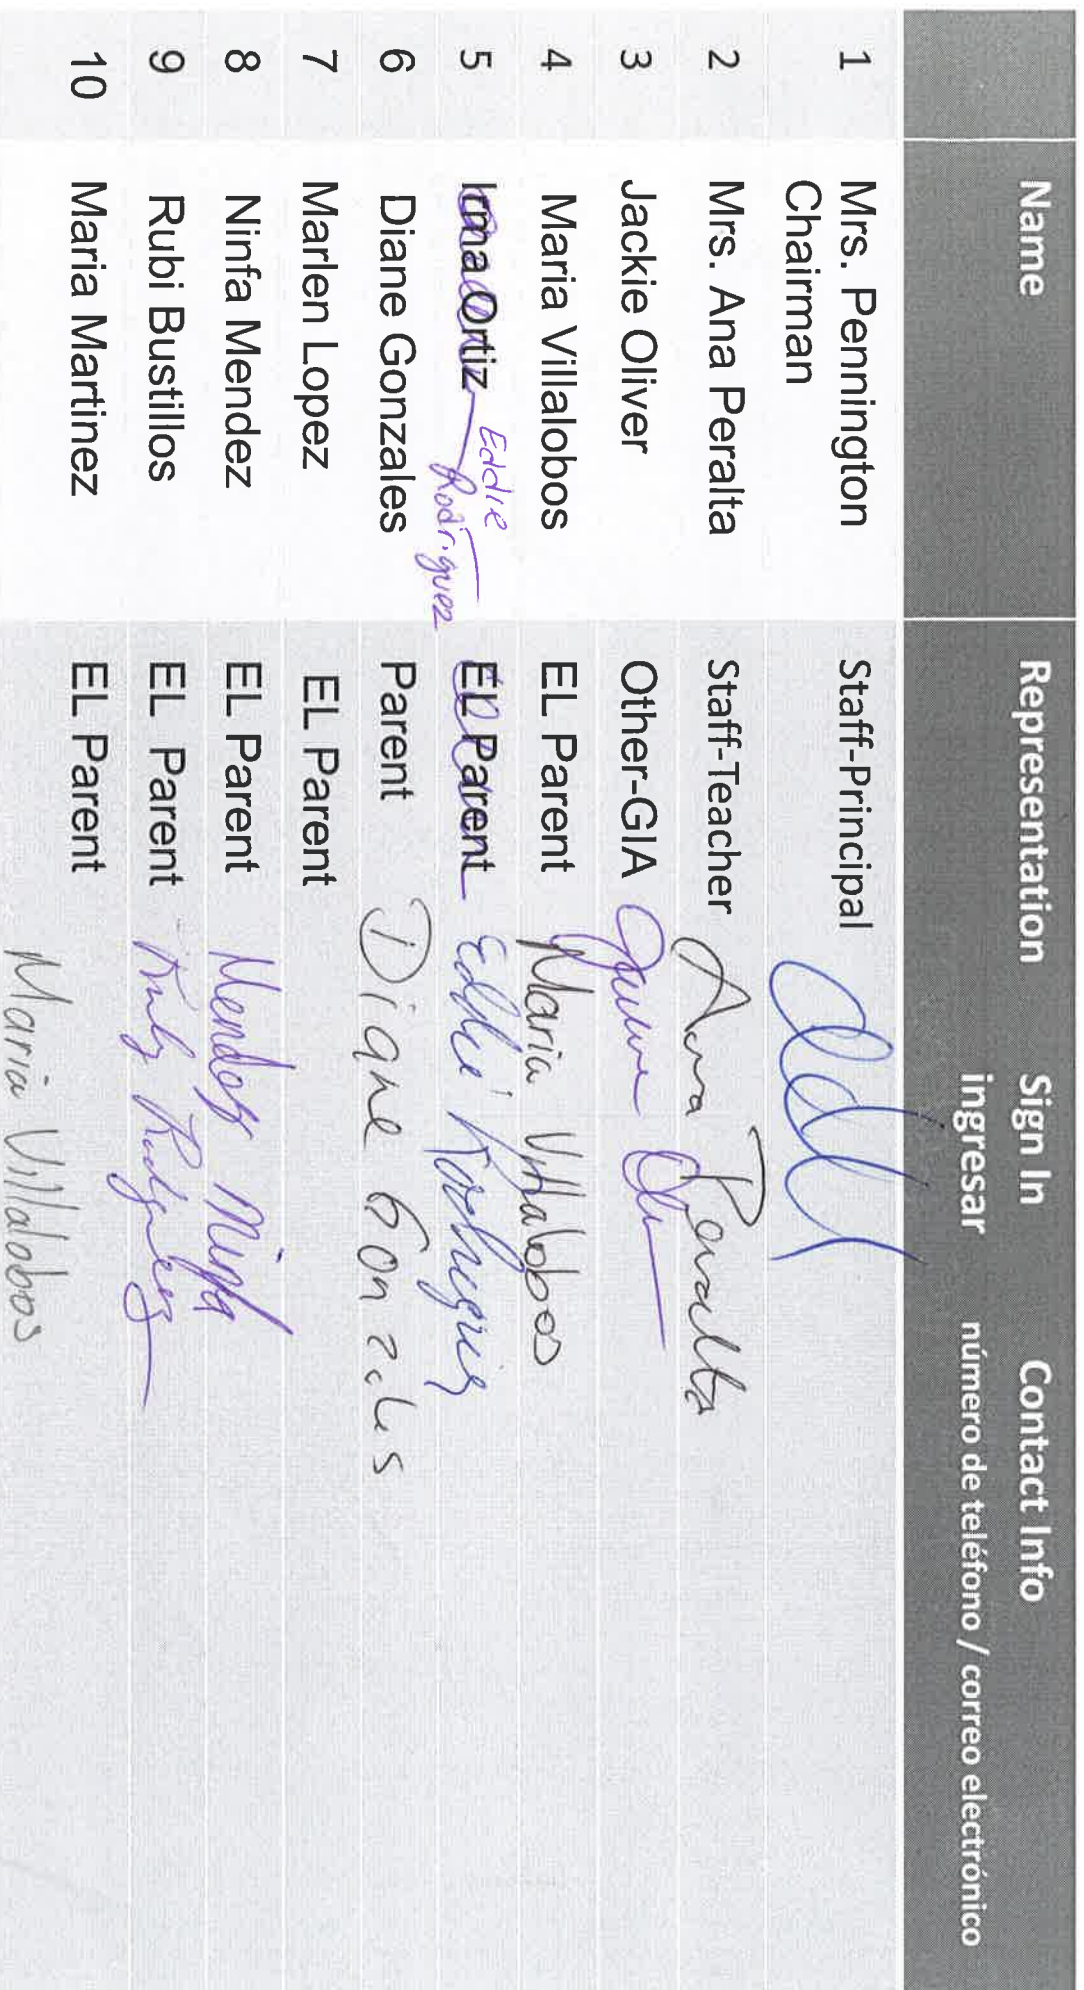 Name Representation Sign In Contact Info
ingresar número de teléfono / correo electrónico
1 Mrs. Pennington Staff-Principal
Chairman
2 Mrs. Ana Peralta Staff-Teacher Ana Peralta
3 Jackie Oliver Other-GIA
4 Maria Villalobos EL Parent Maria Villalobos
5 Irma Ortiz Eddie Rodriguez EL Parent Eddie Rodriguez
6 Diane Gonzales Parent Diane Gonzales
7 Marlen Lopez EL Parent
8 Ninfa Mendez EL Parent
9 Rubi Bustillos EL Parent
10 Maria Martinez EL Parent
Maria Villalobos